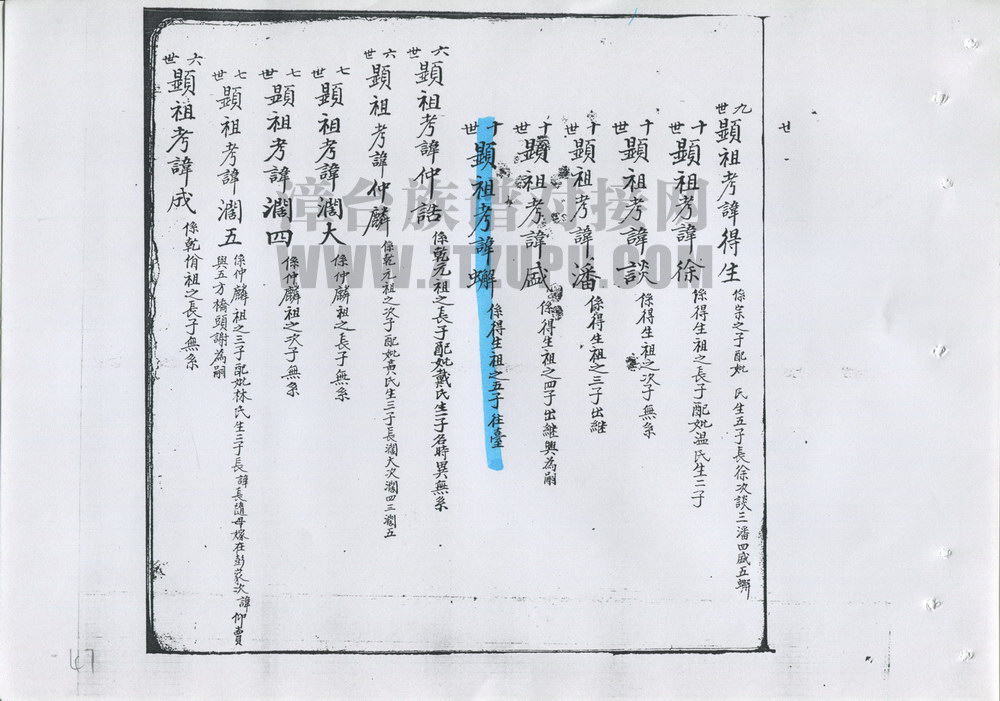 世
九世顕祖考諱得生 係宗之子配妣 氏生五子長徐次談三潘四盛五
十世顕祖考諱徐 係得生祖之長子配妣温氏生二子
十世顕祖考諱談 係得生祖之次子無系
十世顕祖考諱潘 係得生祖之三子出継
十世顕祖考諱盛 係得生祖之四子出継興為嗣
十世顕祖考諱 係得生祖之五子往臺
六世顕祖考諱仲誥 係乾元祖之長子配妣戴氏生一子名時異無系
六世顕祖考諱仲麟 係乾元祖之次子配妣黃氏生三子長濶大次濶四三濶五
七世顕祖考諱濶大 係仲麟祖之長子無系
七世顕祖考諱濶四 係仲麟祖之次子無系
七世顕祖考諱濶五 係仲麟祖之三子配妣林氏生三子長諱長隨母嫁在彭次諱仰賣
與五方橋頭謝為嗣
六世顕祖考諱成 係乾脩祖之長子無系
漳台族谱对接网
WWW.ZTZUPU.COM
47